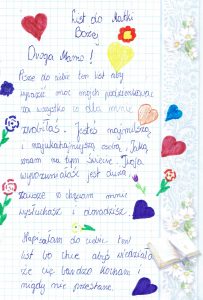 List do Matki
Bożej
Droga Mamo!
Piszę do ciebie ten list aby
wyrazić moc moich podziękowań
za wszystko co dla mnie
zrobiłaś. Jesteś najmilszą,
i najukochańszą osobą, jaką
znam na tym świecie. Twoja
wyrozumiałość jest duża,
zawsze
wysłuchasz i doradzisz.
Napisałam do ciebie ten
list bo chcę abyś wiedziała
że cię bardzo kocham i
nigdy nie przestanę.